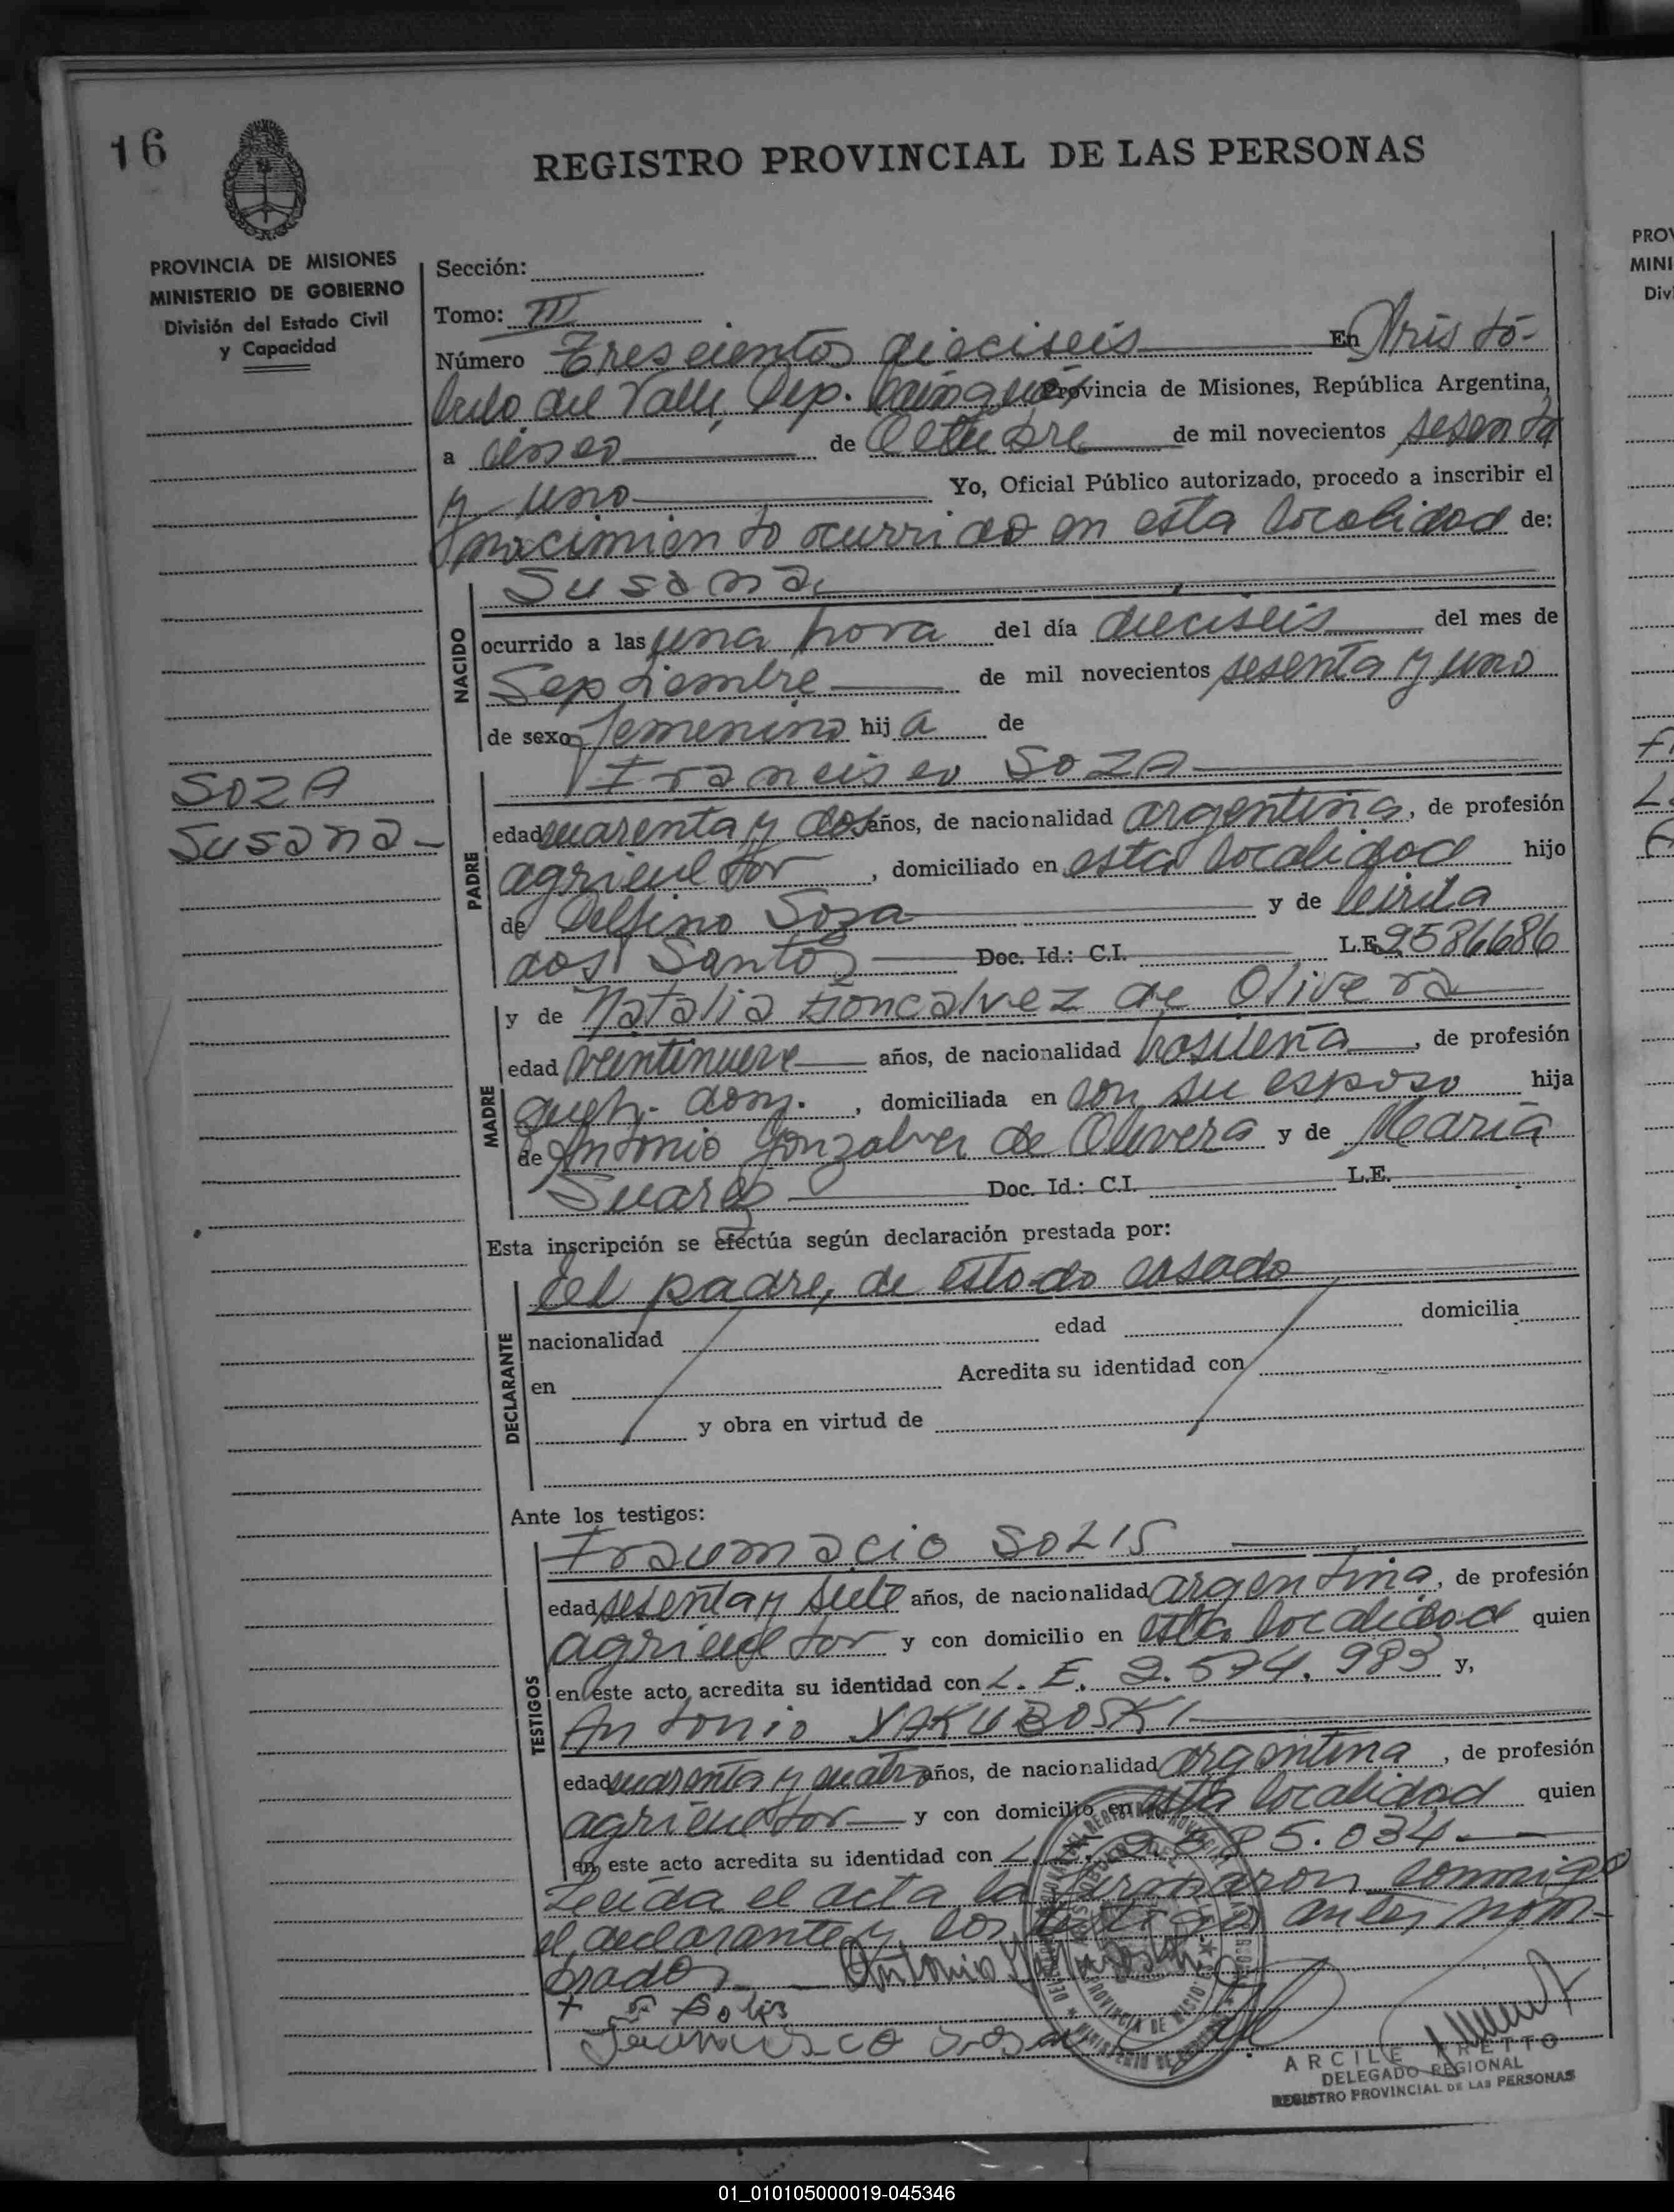 16
REGISTRO PROVINCIAL DE LAS PERSONAS
PROVINCIA DE MISIONES
MINISTERIO DE GOBIERNO
División del Estado Civil
y Capacidad
Sección:
Tomo: III
Número Trescientos dieciseis En Aristó-
bulo del Valle, Dep. Cainguás Provincia de Misiones, República Argentina,
a cinco de Octubre de mil novecientos sesenta
y uno Yo, Oficial Público autorizado, procedo a inscribir el
nacimiento ocurrido en esta localidad de:
NACIDO
Susana
ocurrido a las una hora del día dieciseis del mes de
Septiembre de mil novecientos sesenta y uno
de sexo femenino hija de
SOZA
Susana-
PADRE
Francisco SOZA
edad cuarenta y dos años, de nacionalidad argentina, de profesión
agricultor, domiciliado en esta localidad hijo
de Delfino Soza y de
dos Santos Doc. Id.: C.I. L.E. 2586686
MADRE
y de Natalia Goncalvez de Olivera
edad veintinueve años, de nacionalidad brasileña, de profesión
queh. dom., domiciliada en con su esposo hija
de Antonio Gonzalvez de Olivera y de María
Suarez Doc. Id.: C.I. L.E.
Esta inscripción se efectúa según declaración prestada por:
DECLARANTE
El padre, de estado casado
nacionalidad edad domicilia
en Acredita su identidad con
y obra en virtud de
Ante los testigos:
TESTIGOS
SOLIS
edad sesenta y siete años, de nacionalidad argentina, de profesión
agricultor y con domicilio en esta localidad quien
en este acto acredita su identidad con L. E. 2.574.983 y,
Antonio YAKUBOSKI
edad cuarenta y cuatro años, de nacionalidad argentina, de profesión
agricultor y con domicilio en esta localidad quien
en este acto acredita su identidad con L. E. 2.585.034.
Leída el acta la firmaron conmigo
el declarante y los testigos antes nom-
brados.- Antonio
+ F Solis
Francisco Sosa
ARCILE ARETTO
DELEGADO REGIONAL
REGISTRO PROVINCIAL DE LAS PERSONAS
01_010105000019-045346